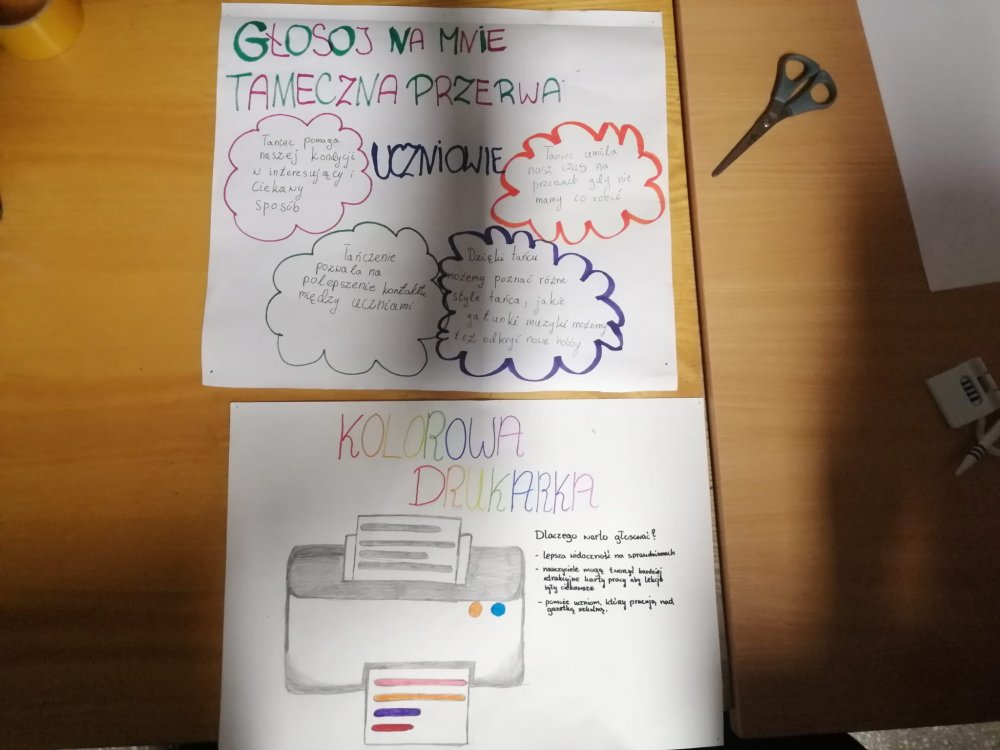 GŁOSOJ NA MNIE
TAMECZNA PRZERWA
UCZNIOWIE
Taniec pomaga
naszej kondycji
w interesujący i
ciekawy
sposób
Taniec umila
nasz czas na
przerwach gdy nie
mamy co robić
Tańczenie
pozwala na
polepszenie kontaktu
między uczniami
Dzięki tańcu
możemy poznać różne
style tańca, jakie
gatunki muzyki możemy
też odkryć nowe hobby
KOLOROWA
DRUKARKA
Dlaczego warto głosować?
- lepsza widoczność na sprawdzianach
- nauczyciele mogą tworzyć bardziej
atrakcyjne karty pracy aby lekcje
były ciekawsze
- pomoże uczniom, którzy pracują nad
gazetką szkolną.